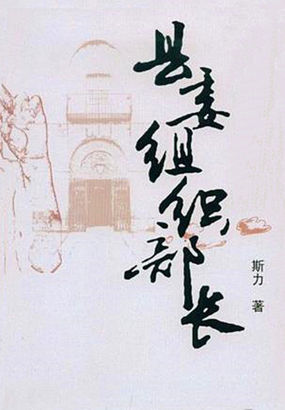 县委组织部长
斯力 著